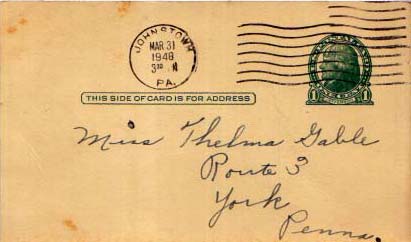 JOHNSTOWN
MAR 31
1948
3 30 M
PA.
THIS SIDE OF CARD IS FOR ADDRESS
1
Miss Thelma Gable
Route 3
York
Penna.